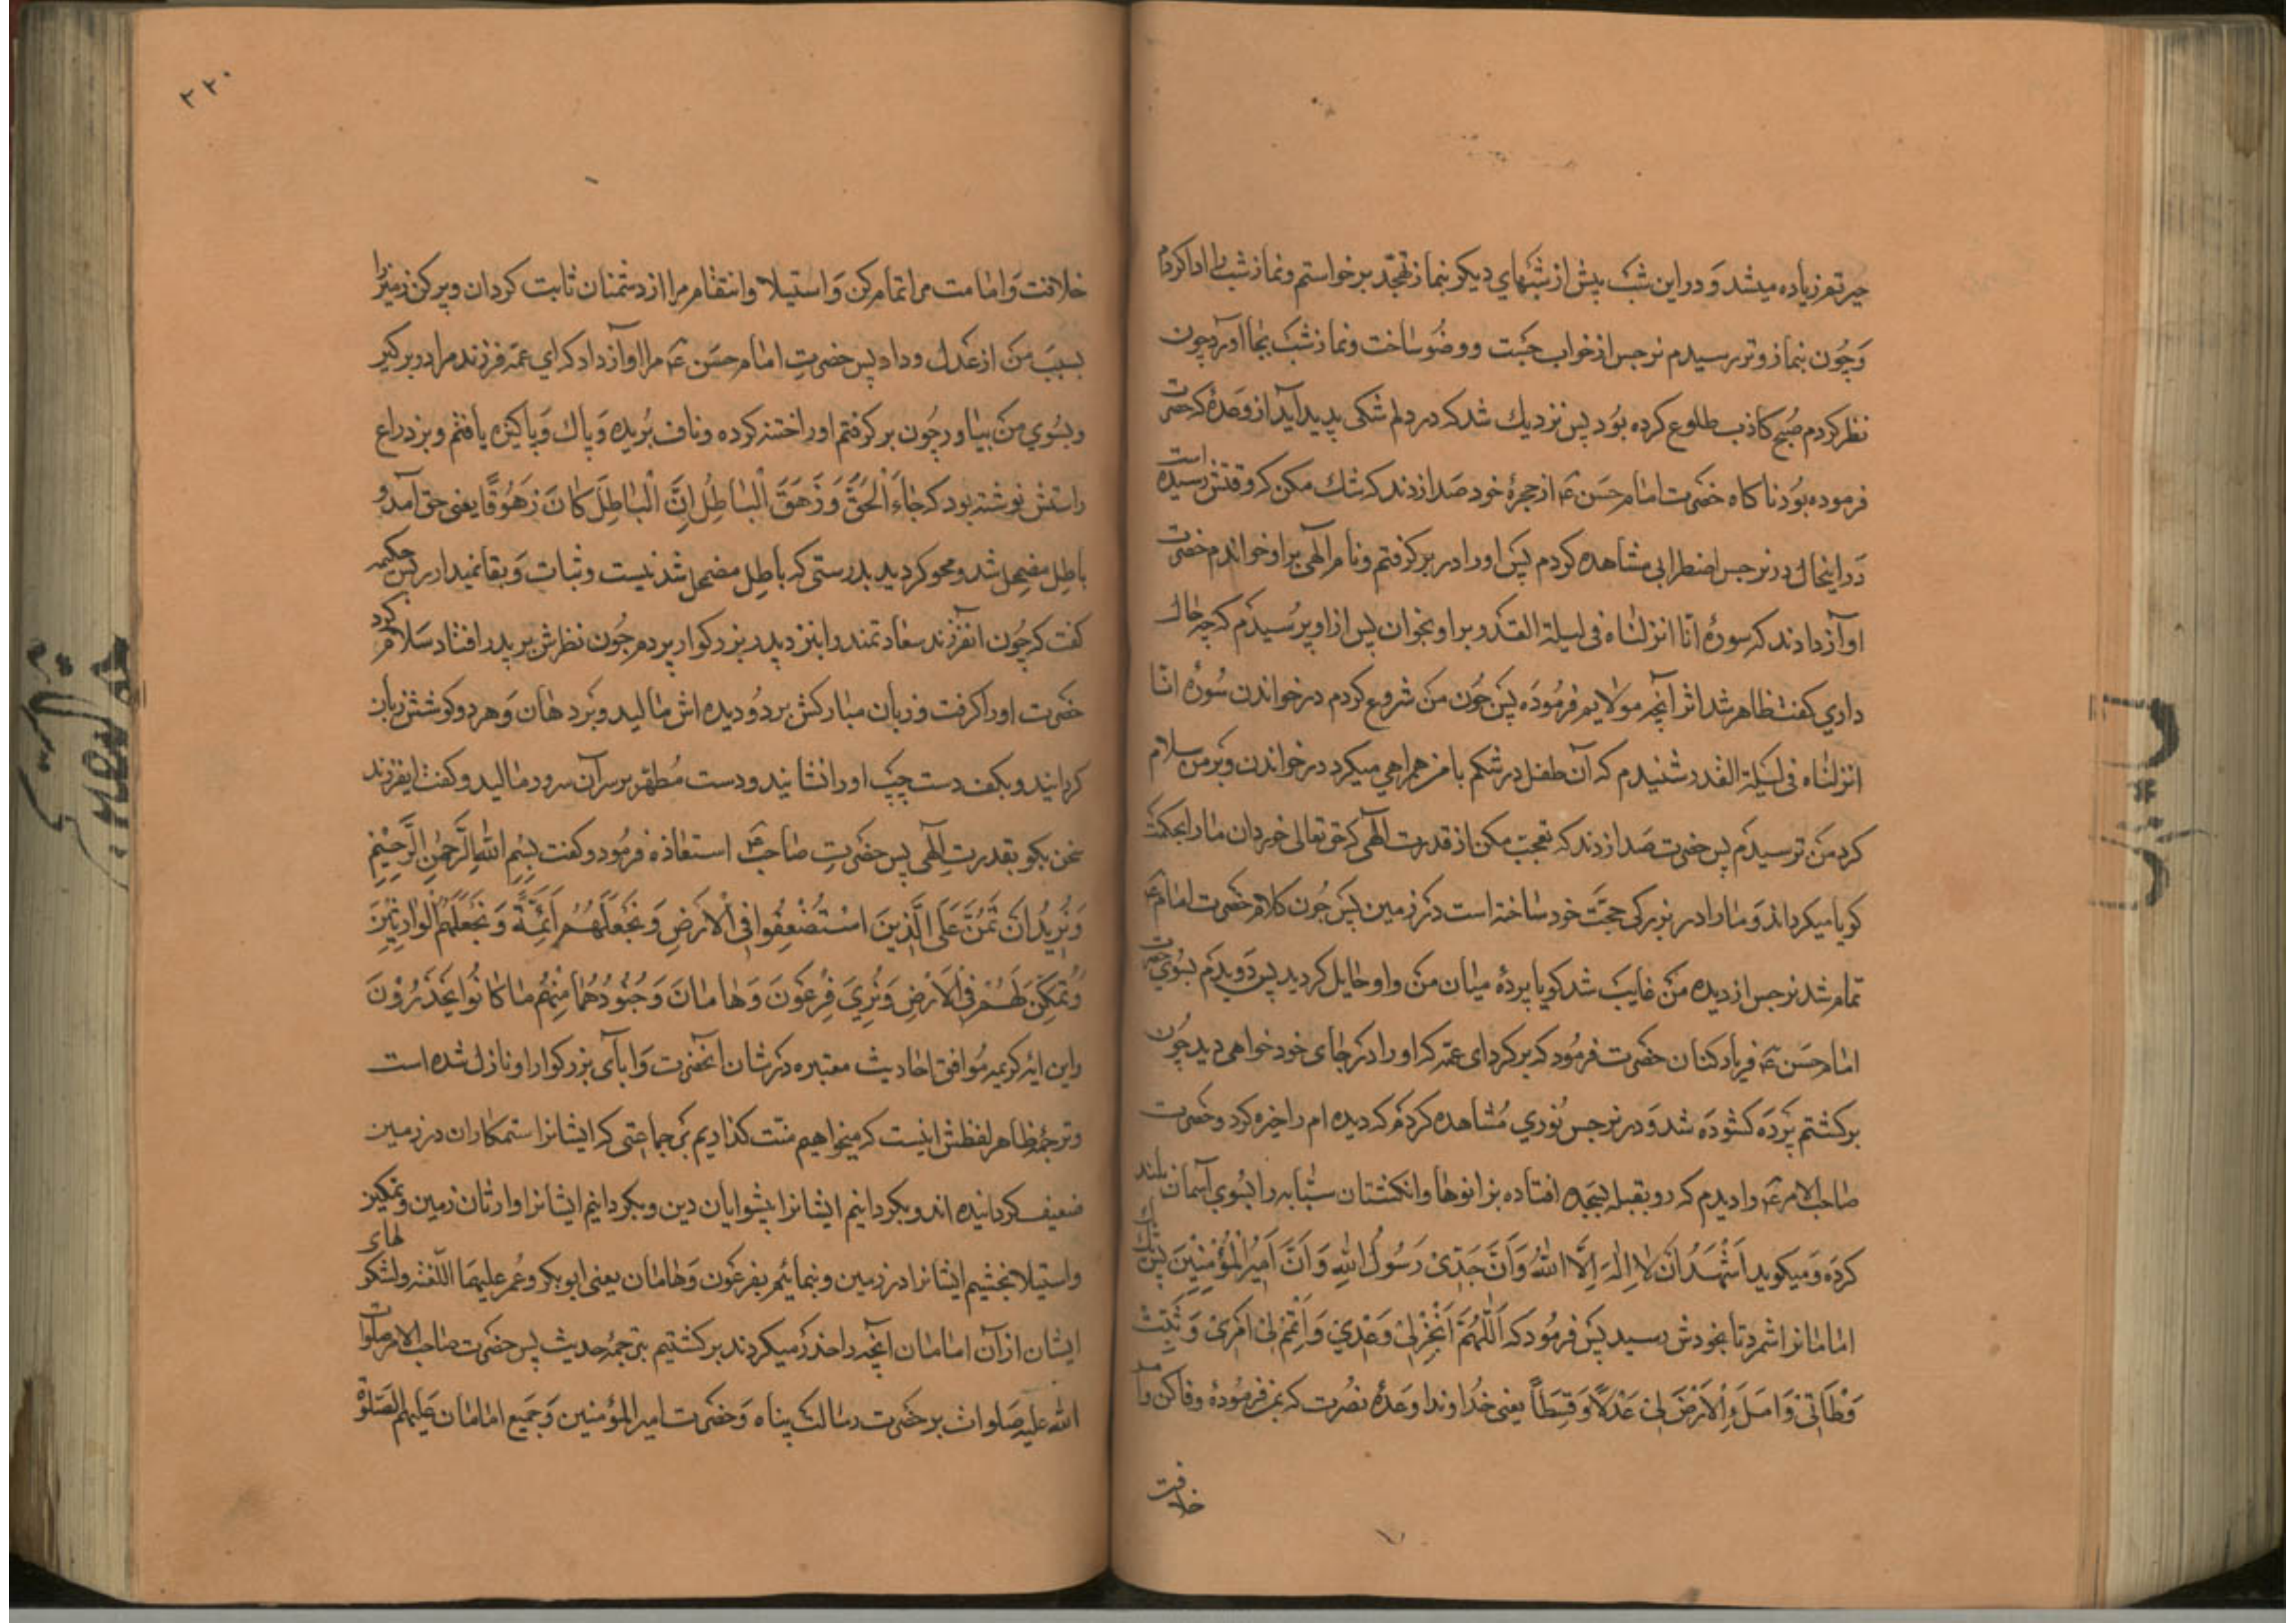 حیرتم زیاده میشد و در این شب پیش از شبهای دیکر بنماز تهجّد برخواستم و نماز شب را ادا کردم
وَچُون بنماز وتر رسیدم نرجس از خواب جَست و وضُو ساخت و نماز شب بجا آورد چون
نظر کردم صُبح کاذب طلوع کرده بُود پس نزدیك شد که در دلم شکی پدید آید از وعدۀ که حضرت
فرموده بوُد ناکاه حضرت امام حسَن ع از حجرۀ خود صَدا زدند که شك مکن که وقتش رسیده است
دَر اینحال در نرجس اضطرابی مشاهده کردم پس اورا در بر کرفتم و نام الهی بر او خواندم حضرت
اوآز دادند که سورۀ انّا انزلناه فی لیلة القدر بر او بخوان پس از او پرُسیدم که چه حال
داري کفت ظاهر شد اثر آنچه مولایم فرمُوده پس چون من شروع کردم در خواندن سُورۀ انّا
انزلناه فی لیلة القدر شنیدم که آن طفل در شکم با من همراهي میکرد در خواندن و بَر من سلام
کرد من ترسیدم پس حضرت صَدا زدند که تعجب مکن از قدرت الهی که حق تعالی خوردان مارا بحکمت
کویا میکرداند و مارا در بزرکی حجّت خود ساخته است در زمین پس چُون کلام حضرت امام ع
تمام شد نرجس از دیده من غایب شد کویا پردۀ میان من و او حایل کردید پس دَویدم بسُوي حضرت
امام حسَن ع فریاد کنان حضرت فرمُود که برکرد ای عمّه که اورا در جای خود خواهی دید چون
برکشتم پَردَه کشودَه شد وَ در نرجس نُوري مُشاهده کردم که دیده ام را خیره کرد و حضرت
صاحب الامر ع را دیدم که رو بقبله بسجده افتاده بزانوها و انکشتان سبّابه را بسُوي آسمان بلند
کردَه وَ میکوید اَشْهَدُ اَنْ لا اِلٰهَ اِلَّا اللّٰهُ وَ اَنَّ جَدّیْ رَسُولُ اللّٰهِ وَ اَنَّ اَمِیْرَ الْمُؤْمِنِیْنَ پس یك یك
امامانرا شمرد تا بخودش رسید پس فرمُود که اَللّٰهُمَّ اَنْجِزْ لِیْ وَعْدِيْ وَ اَتْمِمْ لِیْ اَمْرِیْ وَ ثَبِّتْ
وَطْاَتِیْ وَ امْلَءِ الْاَرْضَ لِیْ عَدْلًا وَ قِسْطًا یعنی خُداوندا وعدۀ نصُرت که بمن فرمُودۀ وفا کن و امر
خلافت
۲۲۰
خلافت وَ امامت مرا تمام کن وَ استیلا و انتقام مرا از دشمنان ثابت کردان و پر کن زمینرا
بسبَب من از عَدل و داد پس حضرتِ امام حسَن ع مرا اوآز داد که اي عمّه فرزند مرا در بر کیر
و بسُوي من بیاور چُون بر کرفتم اورا ختنه کرده و ناف بُریده وَ پاك وَ پاکیزه یافتم و بر ذراع
راستش نوشته بود که جَاءَ الْحَقُّ وَ زَهَقَ الْبَاطِلُ اِنَّ الْبَاطِلَ کَانَ زَهُوْقًا یعنی حق آمد و
باطِل مضمحل شد و محو کردید بدرستی که باطِل مضمحل شدنیست و ثبات وَ بقا نمیدارد پس حکیمه
کفت که چُون انفرزند سعادتمند را بنزد پدر بزرکوار بردم چُون نظرش بر پدر افتاد سَلام کرد
حضرت اورا کرفت و زبان مبارکش بر دوُ دیده اش مالید و بَر دهان وَ هر دو کوشش زبان
کردانید و بکف دست چپ اورا نشانید و دست مُطهّر بر سر آن سرور مالید و کفت ایفرزند
سخن بکو بقدرت الٰهی پس حضرتِ صاحب ع استعاذه فرمُود و کفت بِسْمِ اللّٰهِ الرَّحْمٰنِ الرَّحِیْمِ
وَ نُرِیْدُ اَنْ نَمُنَّ عَلَی الَّذِیْنَ اسْتُضْعِفُوا فِی الْاَرْضِ وَ نَجْعَلَهُمْ اَئِمَّةً وَ نَجْعَلَهُمُ الْوَارِثِیْنَ
وَ نُمَکِّنَ لَهُمْ فِی الْاَرْضِ وَ نُرِيَ فِرْعَوْنَ وَ هَامَانَ وَ جُنُوْدَهُمَا مِنْهُمْ مَا کَانُوْا یَحْذَرُوْنَ
واین ایه کریمه مُوافق احادیث معتبره در شان آنحضرت وَ آبآی بزرکوار او نازل شده است
و ترجمۀ ظاهر لفظش اینست که میخواهیم منّت کذاریم بَر جماعتی که ایشانرا ستمکاران در زمین
ضعیف کردانیده اند و بکردانیم ایشانرا پیشوایان دین و بکردانیم ایشانرا وارثان زمین و تمکین
و استیلا بخشیم ایشانرا در زمین و بنمائیم بفرعَون وَ هامان یعنی ابوبکر و عُمر علیهما اللّعنه و لشکر های
ایشان از آن امامان آنچه را حذر میکردند برکشتیم بترجمۀ حدیث پس حضرت صاحب الامر صلوات
اللّه علیه صَلوات بر حضرت رسالت پناه وَ حضرت امیر المؤمنین وَ جَمیع امامان عَلیهم الصَّلوٰة